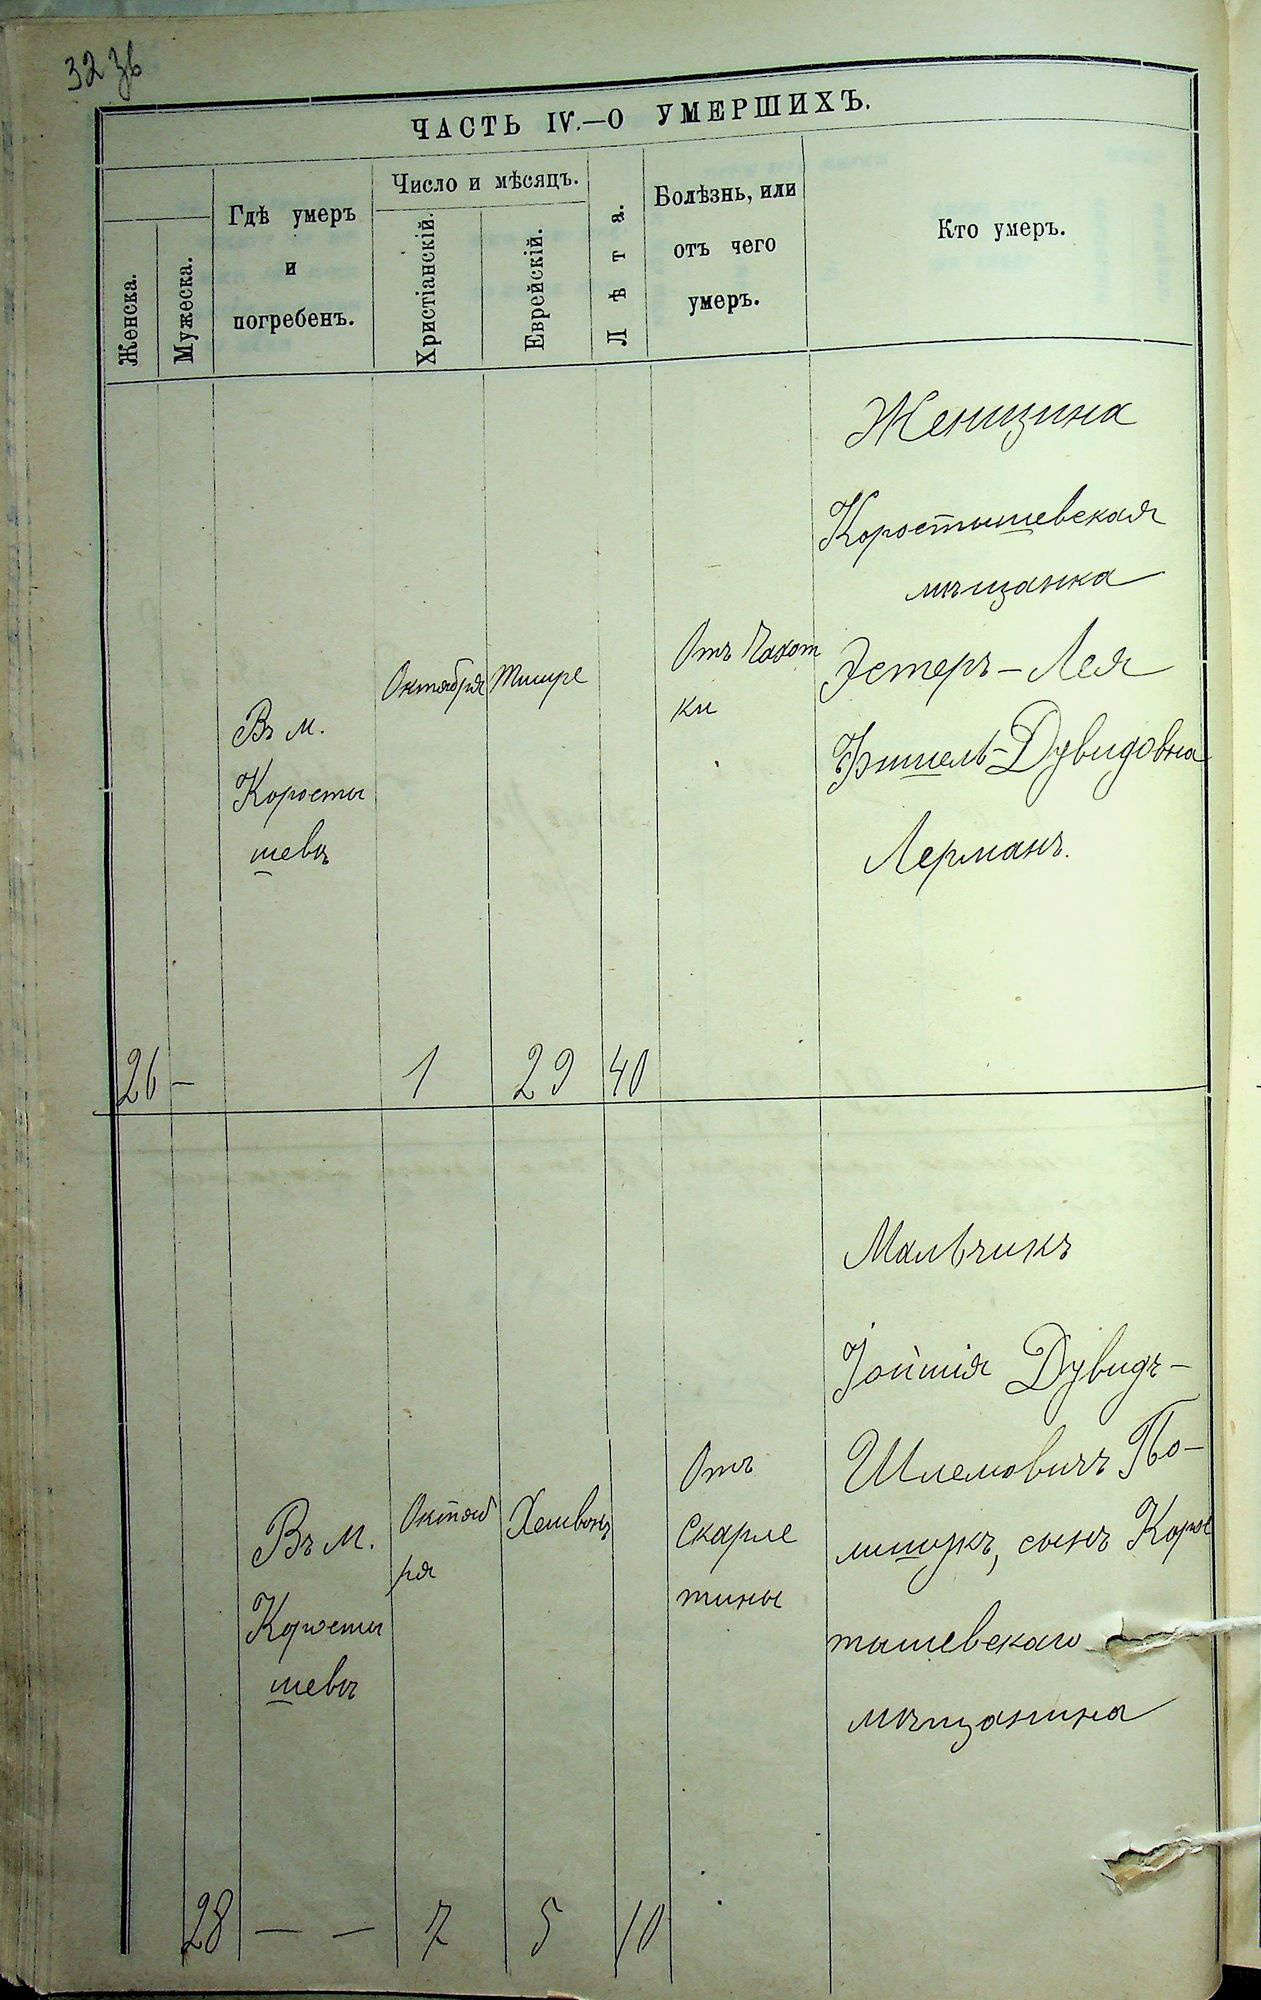 32 зв
ЧАСТЬ IV.—О УМЕРШИХЪ.
Женска.
Мужеска.
Гдѣ умеръ
и
погребенъ.
Число и мѣсяцъ.
Христіанскій.
Еврейскій.
Лѣта.
Болѣзнь, или
отъ чего
умеръ.
Кто умеръ.
26
—
Въ м.
Коросты
шевѣ
Октября
1
Тишре
29
40
Отъ Чахот
ки
Женщина
Коростышевская
мѣщанка
Эстеръ-Лея
Фишель-Дувидовна
Лерманъ.
28
— —
Въ м.
Коросты
шевѣ
Октяб
ря
7
Хешвонъ
5
10
Отъ
Скарле
тины
Мальчикъ
Іойшія Дувидъ-
Шлемовичъ По-
лишукъ, сынъ Корос
тышевскаго
мѣщанина